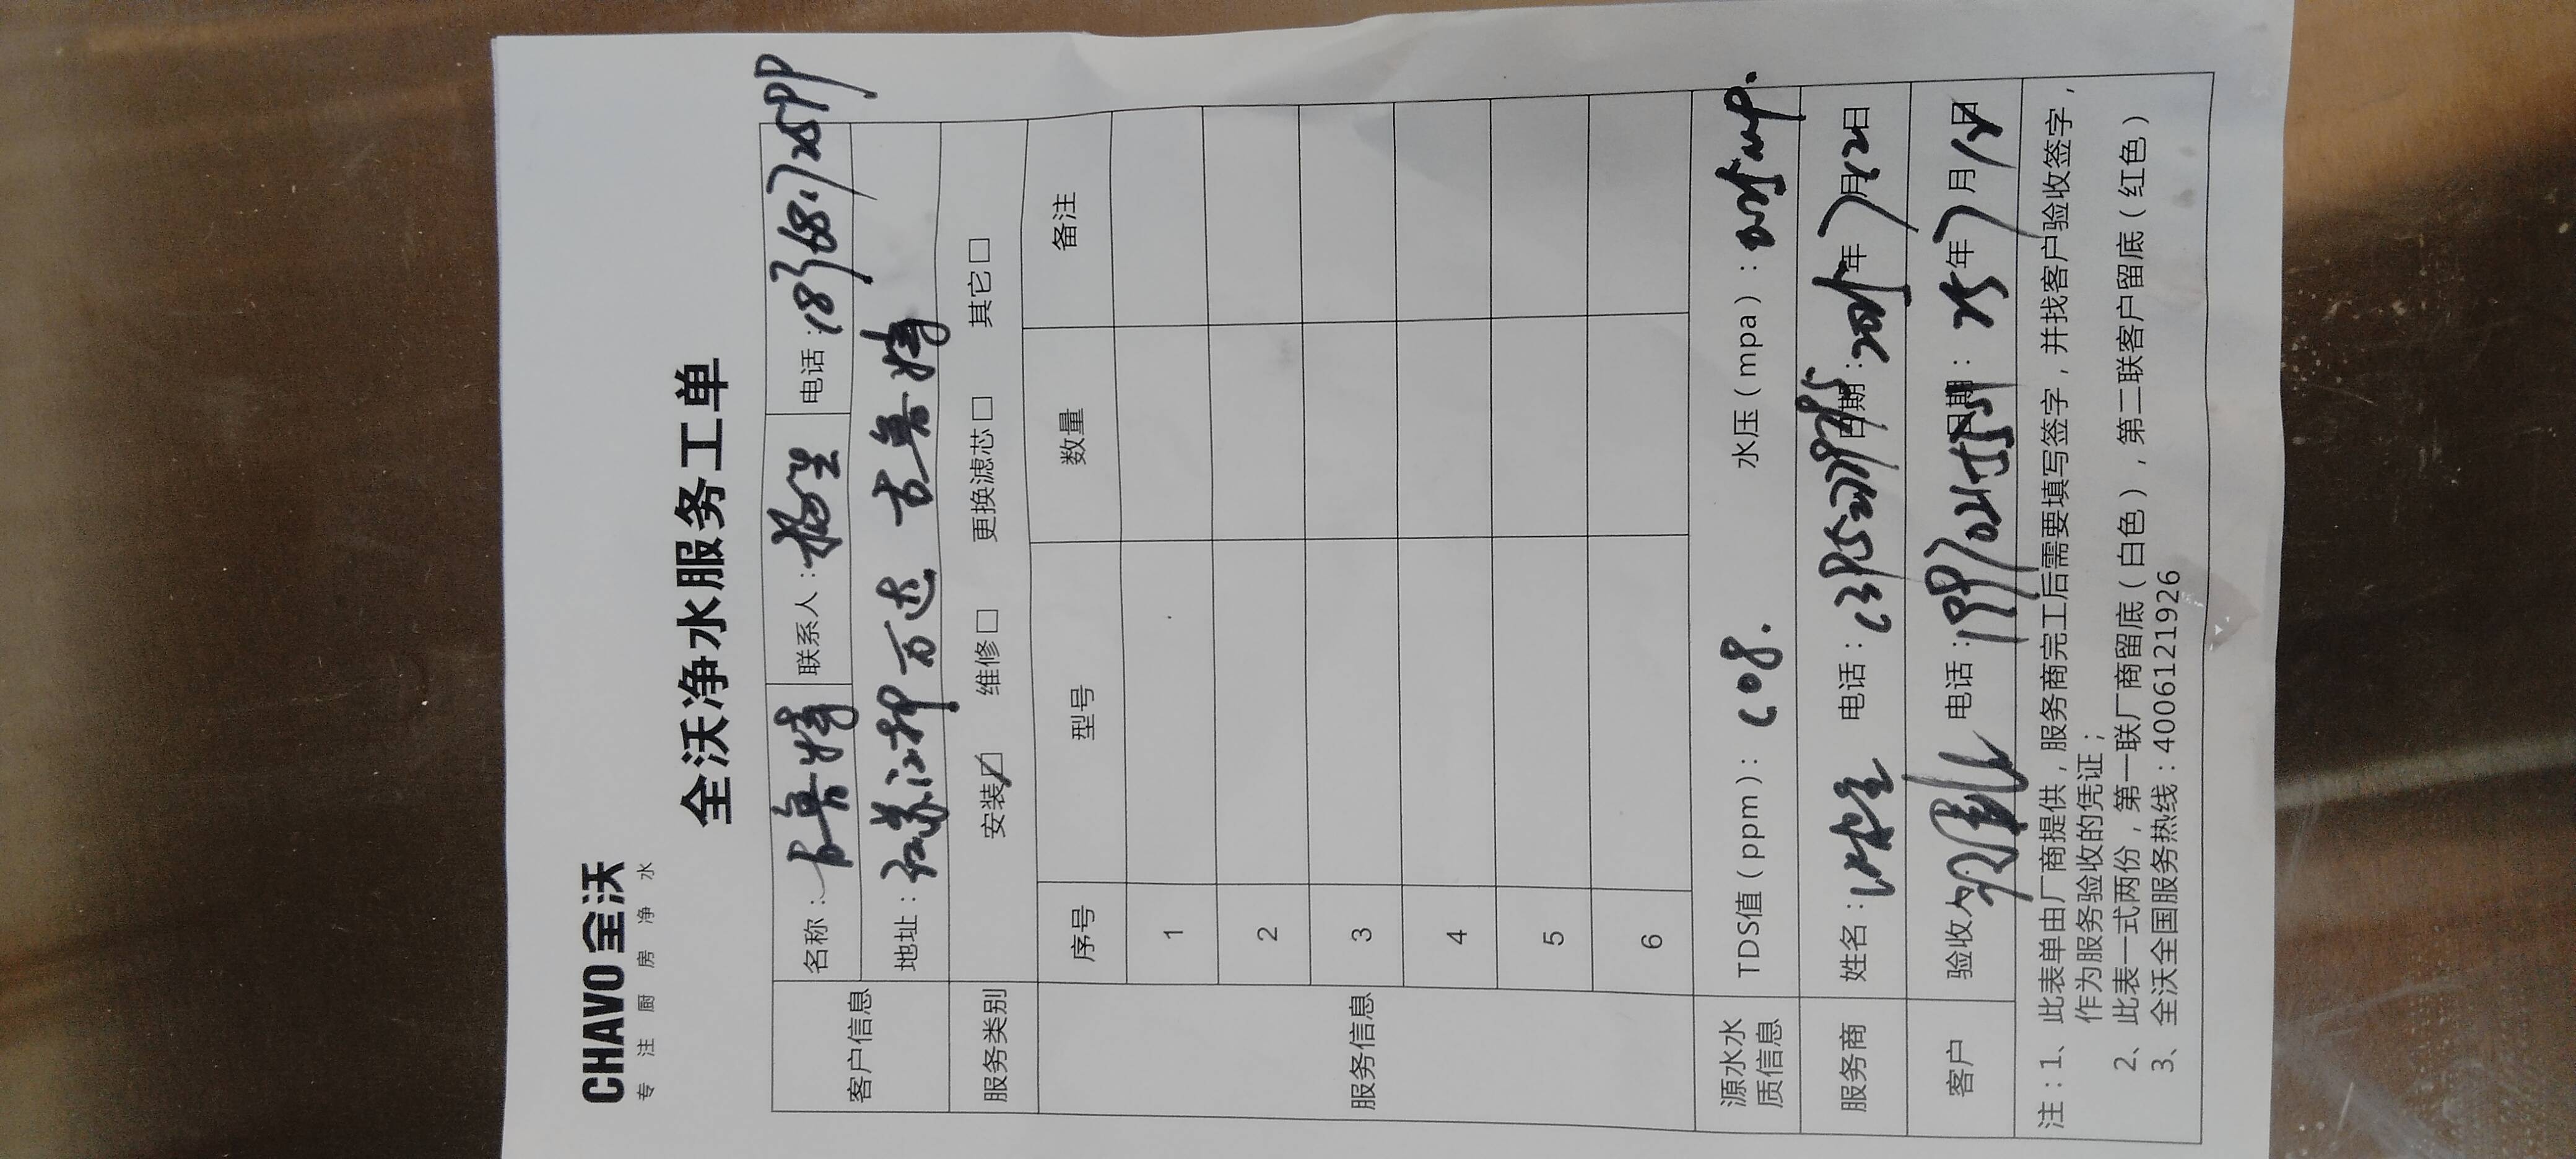 CHAVO 全沃
专注厨房净水
全沃净水服务工单
客户信息 名称： 联系人：杨生 电话：
地址：江苏江阴万达 古奥特
服务类别 安装☑ 维修□ 更换滤芯□ 其它□
服务信息 序号 型号 数量 备注
1
2
3
4
5
6
源水水质信息 TDS值（ppm）：108. 水压（mpa）：
服务商 姓名： 电话： 日期：2025年7月12日
客户 验收人 电话： 日期：25年7月12日
注：1、此表单由厂商提供，服务商完工后需要填写签字，并找客户验收签字，
作为服务验收的凭证；
2、此表一式两份，第一联厂商留底（白色），第二联客户留底（红色）
3、全沃全国服务热线：4006121926